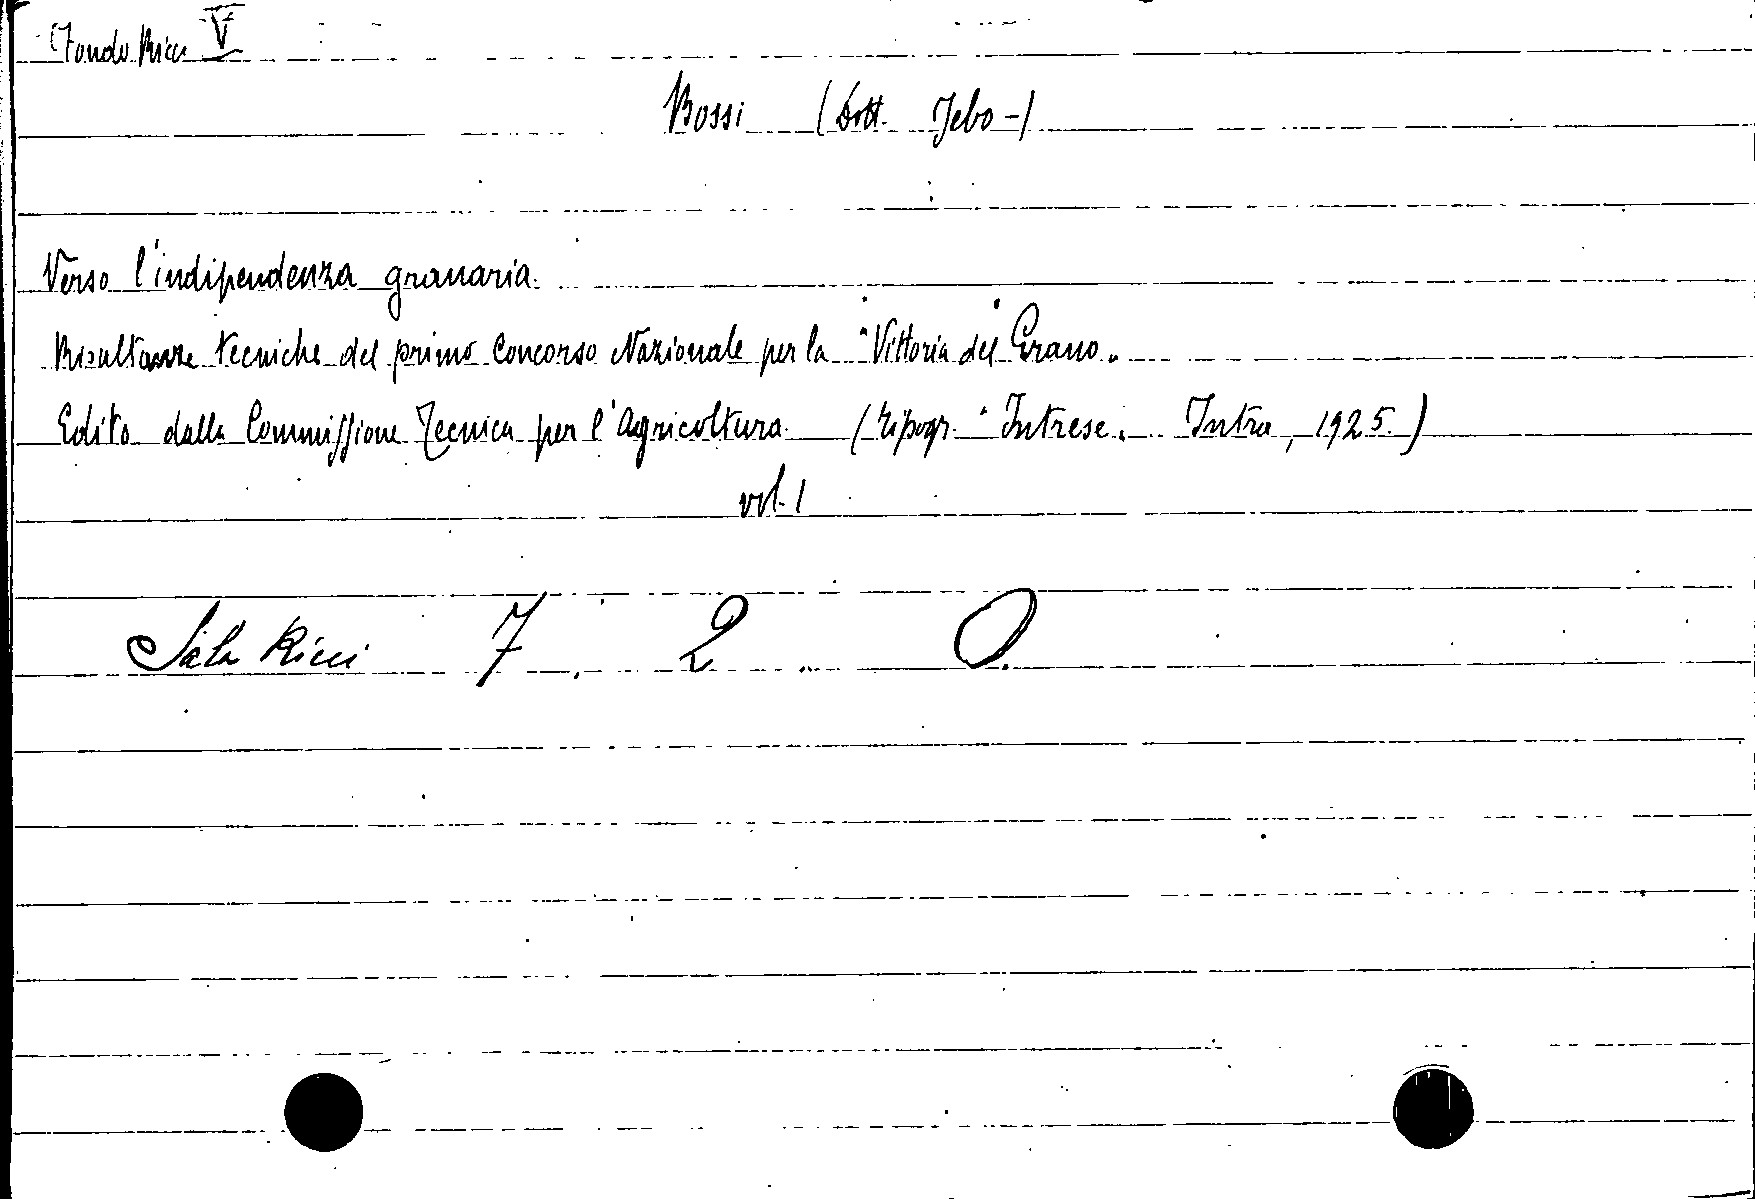 Fondo Ricci V
Bossi (Dott. Jebo -)
Verso l'indipendenza granaria.
Risultanze tecniche del primo Concorso Nazionale per la "Vittoria del Grano"
Edito dalla Commissione Tecnica per l'Agricoltura. (Tipogr. "Intrese" Intra, 1925.)
vol. 1
Sala Ricci 7. 2 O.